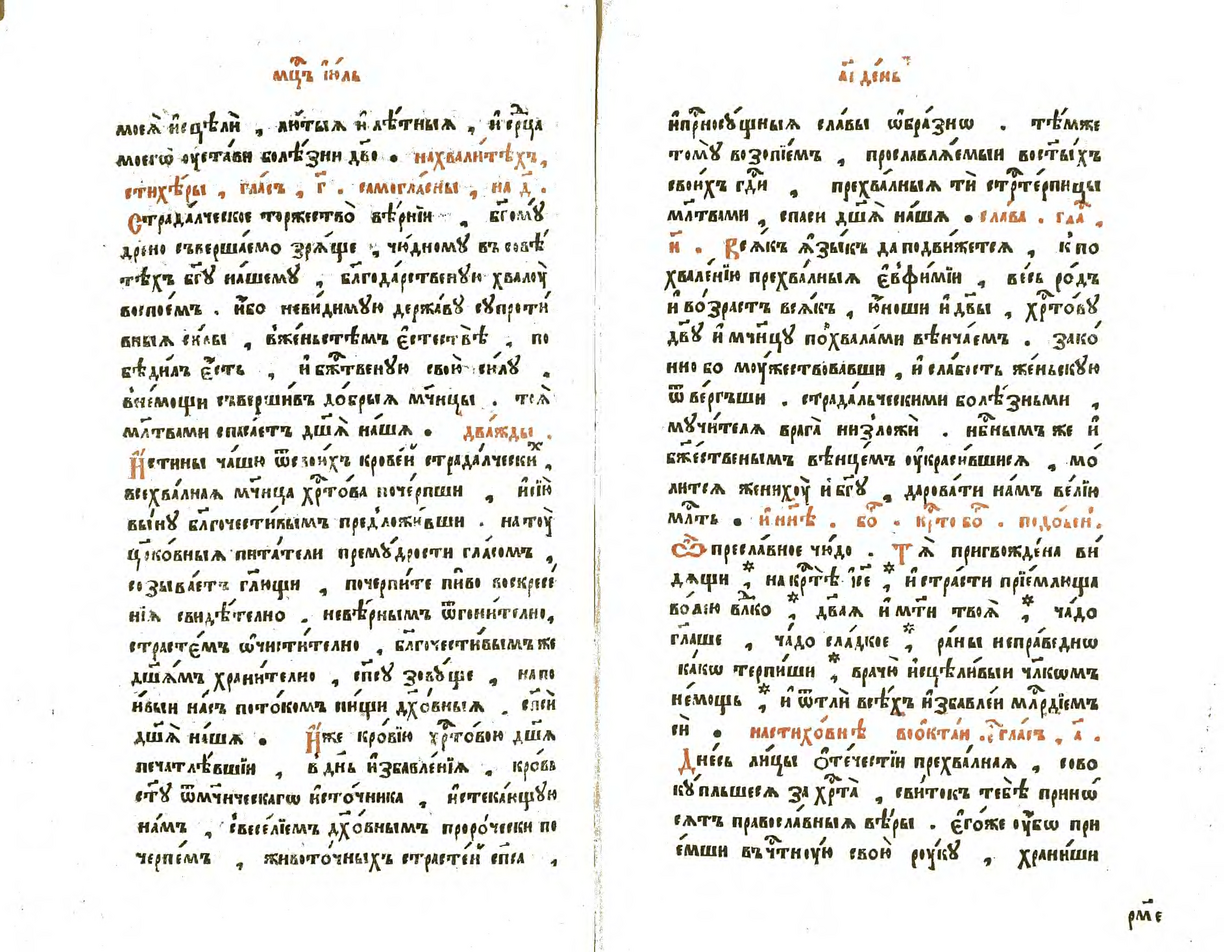 мцⷭ҇ъ і҆ю́ль
моеѧ̀ и҆сцѣлѝ , лю́тыѧ и҆ лѣ́тныѧ , и҆ срⷣца
моегѡ оу҆ста́ви болѣ́зни дв҃о • нахвали́тѣхъ,
стихѣ́ры , гла́съ , г҃ . самогла́сны , на д҃ .
Страда́лческое торжество̀ вѣ́рнїи , бг҃ому́
дрено съверша́емо зрѧ́ще , чю́дному въ совѣ́
тѣхъ бг҃у на́шему , благода́рственую хвалоу̀
воспое́мъ . и҆́бо неви́димую держа́ву супроти́
вныѧ си́лы , вже́ньстѣмъ є҆стествѣ̀ , по
бѣди́лъ є҆́сть , и҆ бж҃́твеную свою̀ си́лу ,
вне́мощи съверши́въ до́брыѧ мч҃нцы . тоѧ̀
мл҃твами спаса́етъ дш҃а̀ на́шѧ • два́жды .
И҆́стины ча́шю ѿсвои́хъ крове́й страда́лческиⷯ ,
всехва́лнаѧ мч҃нца хрⷭ҇то́ва почерпши , и҆сїю̀
вы́ну бл҃гочести́вымъ предложи́вши . на тоу̀
цр҃ко́вныѧ пита́тели прему́дрости гла́сомъ ,
созыва́етъ гл҃ющи , почерпи́те пи́во воскресе́
нїѧ свидѣ́телно . невѣ́рнымъ ѿгони́телно,
страсте́мъ ѡ҆чисти́телно , бл҃гочести́вымъ же
дш҃а́мъ храни́телно , сп҃су зову́ще , напо
и́выи на́съ пото́комъ пи́щи дх҃о́вныѧ . сп҃сѝ
дш҃а̀ на́шѧ • И҆́же кро́вїю хрⷭ҇то́вою дш҃а
печатлѣ́вшїи , в дн҃ь и҆збавле́нїѧ , кровь
ст҃у ѿмч҃ническагѡ и҆сто́чника , и҆стека́ющую
на́мъ , свесе́лїемъ дх҃о́внымъ проро́чески по
че́рпемъ , животочныхъ страсте́й сп҃са ,
а҃і де́нь
и҆прⷭ҇носу́щныѧ сла́вы ѡ҆́бразнѡ . тѣ́мже
тому̀ возопїе́мъ , прославлѧ́емыи востыⷯхъ
свои́хъ гдⷭ҇и , прехва́лныѧ тѝ стрⷭ҇тоте́рпицы
мл҃твами , спасѝ дш҃а̀ на́шѧ • сла́ва . глаⷭ҇ ,
и҃ . Всѧ́къ ѧ҆зы́къ да подви́жетсѧ , к по
хвале́нїю прехва́лныѧ є҆вѳи́мїи , ве́сь ро́дъ
и҆ во́зрастъ всѧ́къ , ю҆́ноши и҆ дв҃ы , хрⷭ҇то́ву
дв҃у и҆ мч҃нцу похвала́ми вѣнча́емъ . зако́
нно бо моу́жествова́вши , и҆ сла́бость же́ньскую
ѿ ве́ргъши . страда́льческими болѣ́зньми ,
мучи́телѧ врага̀ низложѝ . нб҃ным́ъ же и҆
бж҃ественымъ вѣнце́мъ оу҆краси́вшисѧ , мо́
литсѧ женихоу̀ и҆ бг҃у , дарова́ти на́мъ ве́лїю
млⷭ҇ть • и҆ ны́нѣ . боⷢ҇ . крⷭ҇то боⷢ҇ . подо́бен .
Ѽ пресла́вное чю́до . Тѧ̀ пригвожде́на ви́
дѧщи * на крⷭ҇тѣ̀ і҆се * и҆ стра́сти прїе́млюща
во́лею влⷣко * дв҃аѧ и҆ мт҃и твоѧ̀ * ча́до
гл҃аше , ча́до сла́дкое * ра́ны непра́веднѡ
ка́кѡ терпи́ши * врачю̀ и҆сцѣли́выи чл҃кѡмъ
не́мощь * и҆ ѿ тлѝ всѣ́хъ и҆зба́влеи млⷭ҇рдїемъ
сѝ • на стихо́внѣ во ѻ҆кта́и . гла́съ , а҃ .
Дне́съ ли́цы ѻ҆те́честїи прехва́лнаѧ , сово
ку́пльшесѧ за хрⷭ҇та̀ , сви́токъ тебѣ̀ принѡ́
сѧтъ правосла́вныѧ вѣ́ры . є҆го́же оу҆́бѡ при
е́мши въ чⷭ҇тную свою̀ роу́ку , храни́ши
рм҃е